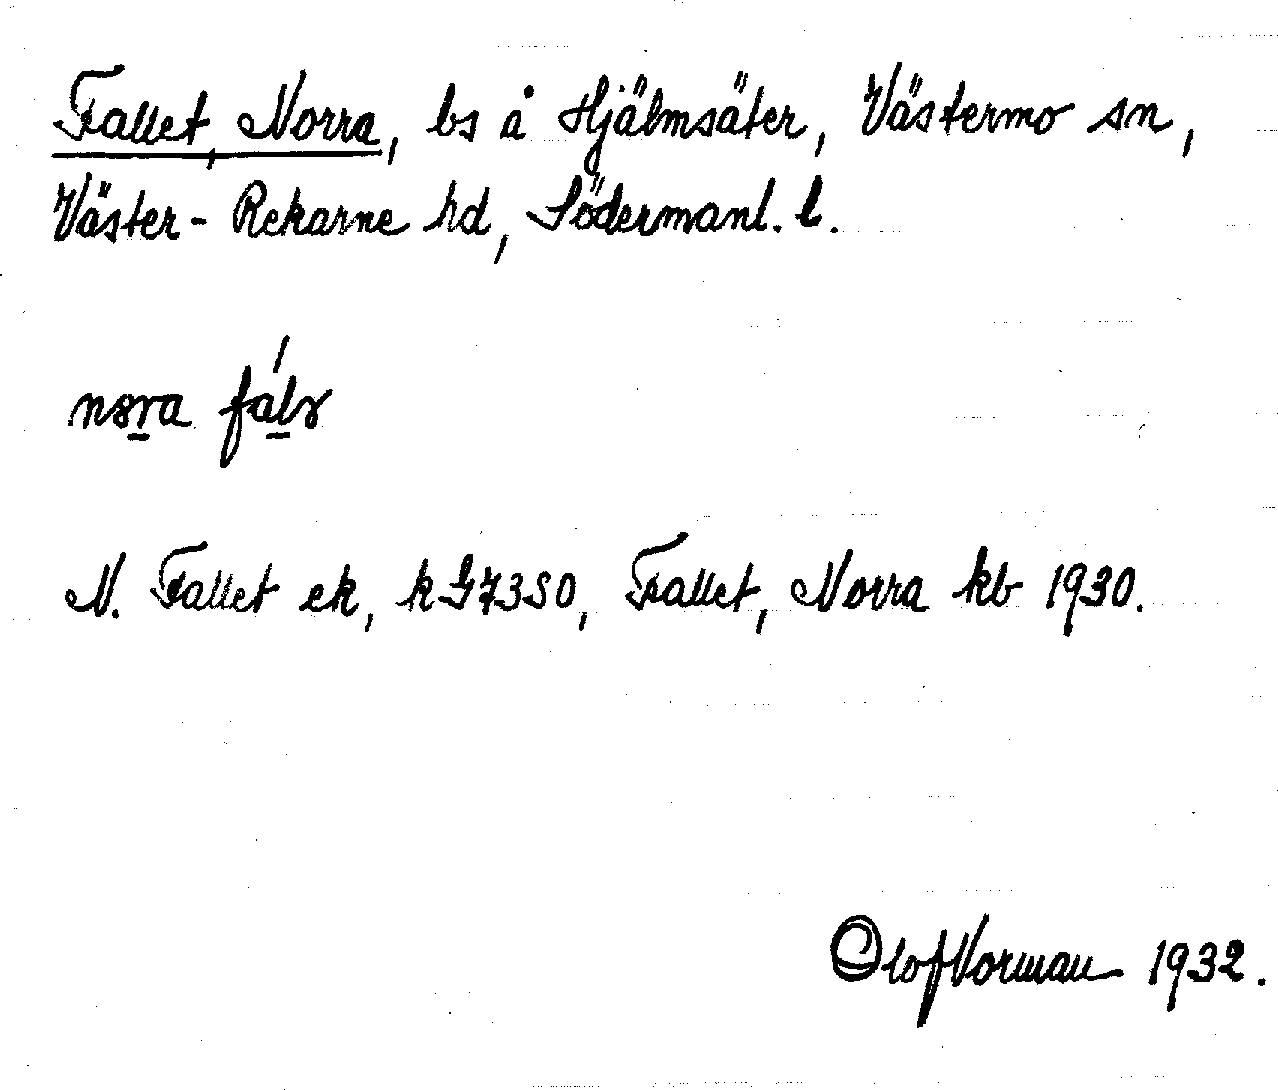 Fallet, Norra, bs å Hjälmsäter, Västermo sn,
Väster-Rekarne hd, Södermanl. l.
N. Fallet ek, k G7350, Fallet, Norra kb 1930.
Olof Norman 1932.